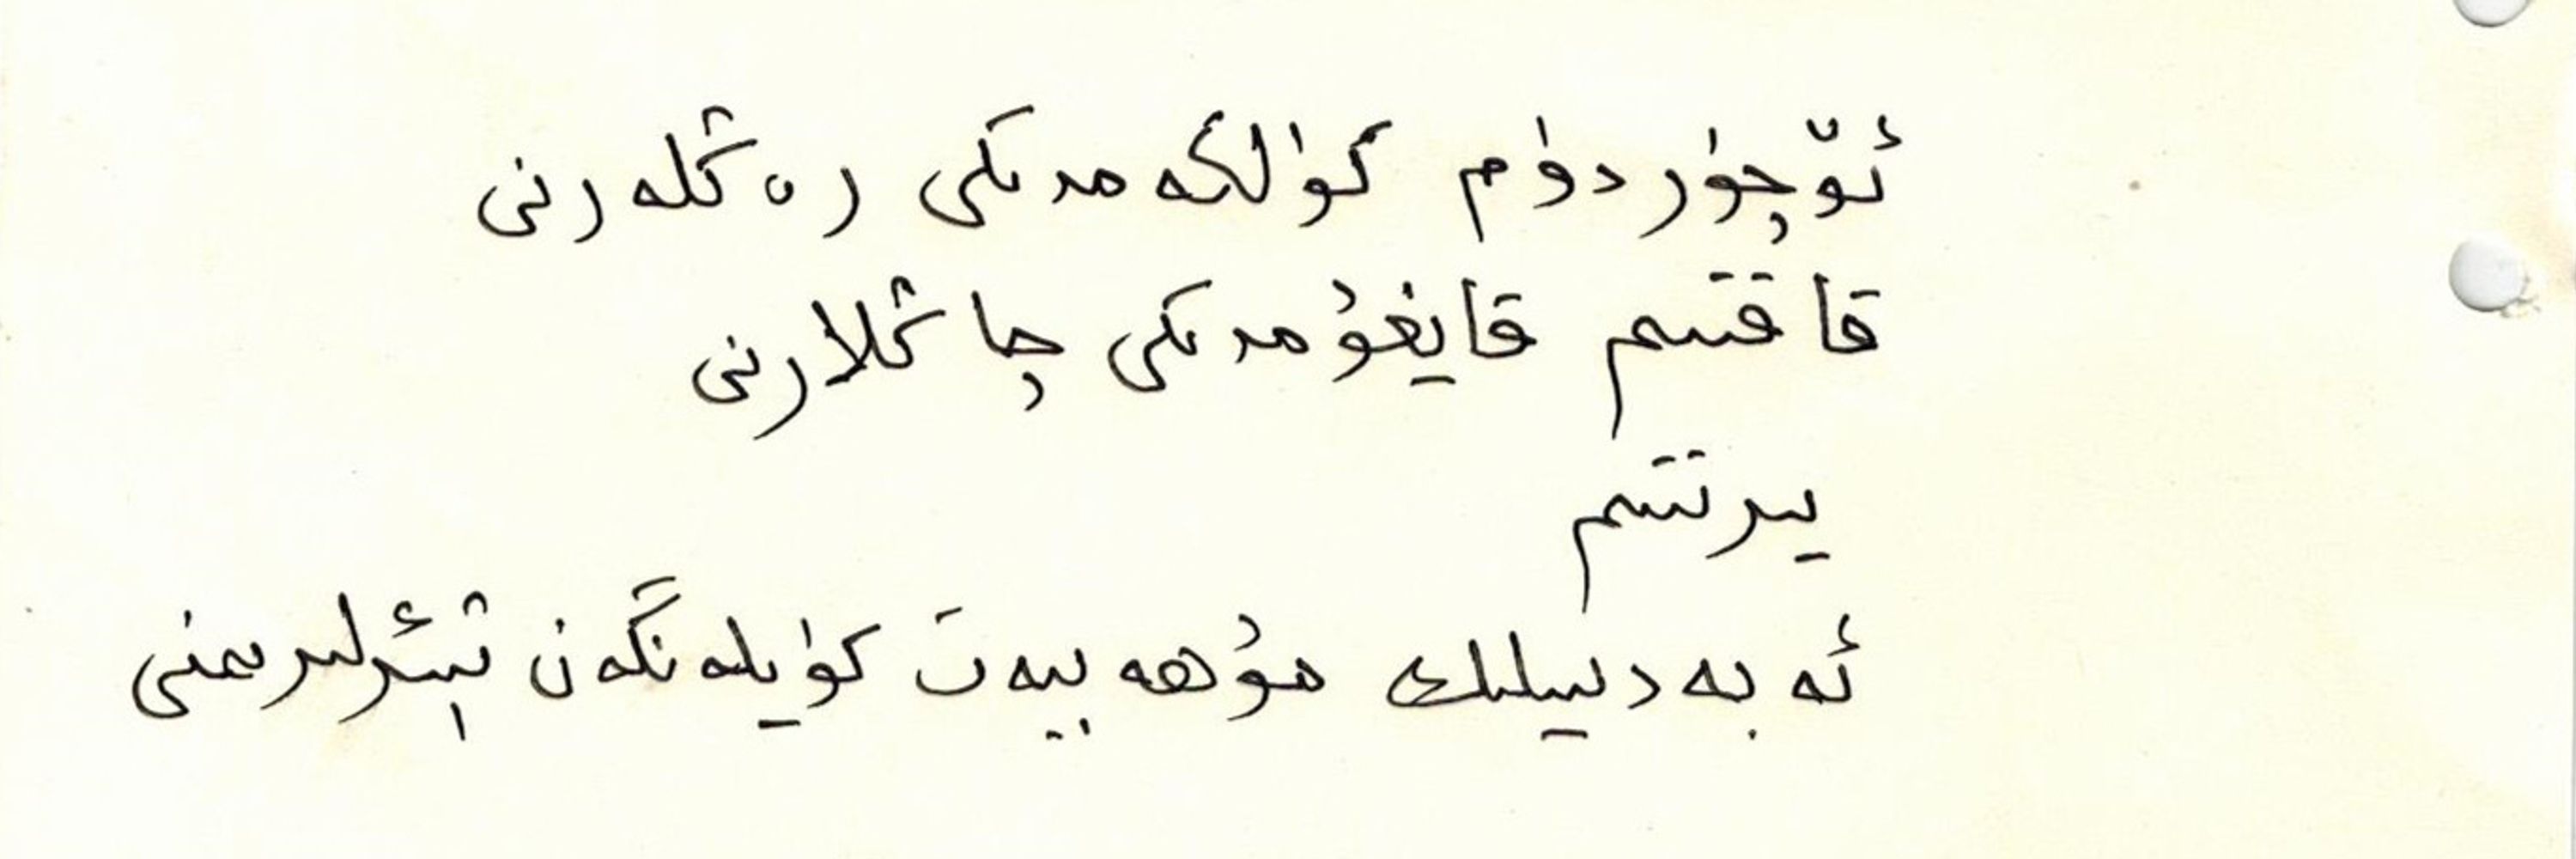 ئۆچۈردۈم كۆلەڭگەمدىكى رەڭلەرنى
قاقتىم قايغۇمدىكى چاڭلارنى
يىرتتىم
ئەبەدىيلىك مۇھەببەت كۈيلەنگەن شېئىرلىرىمنى